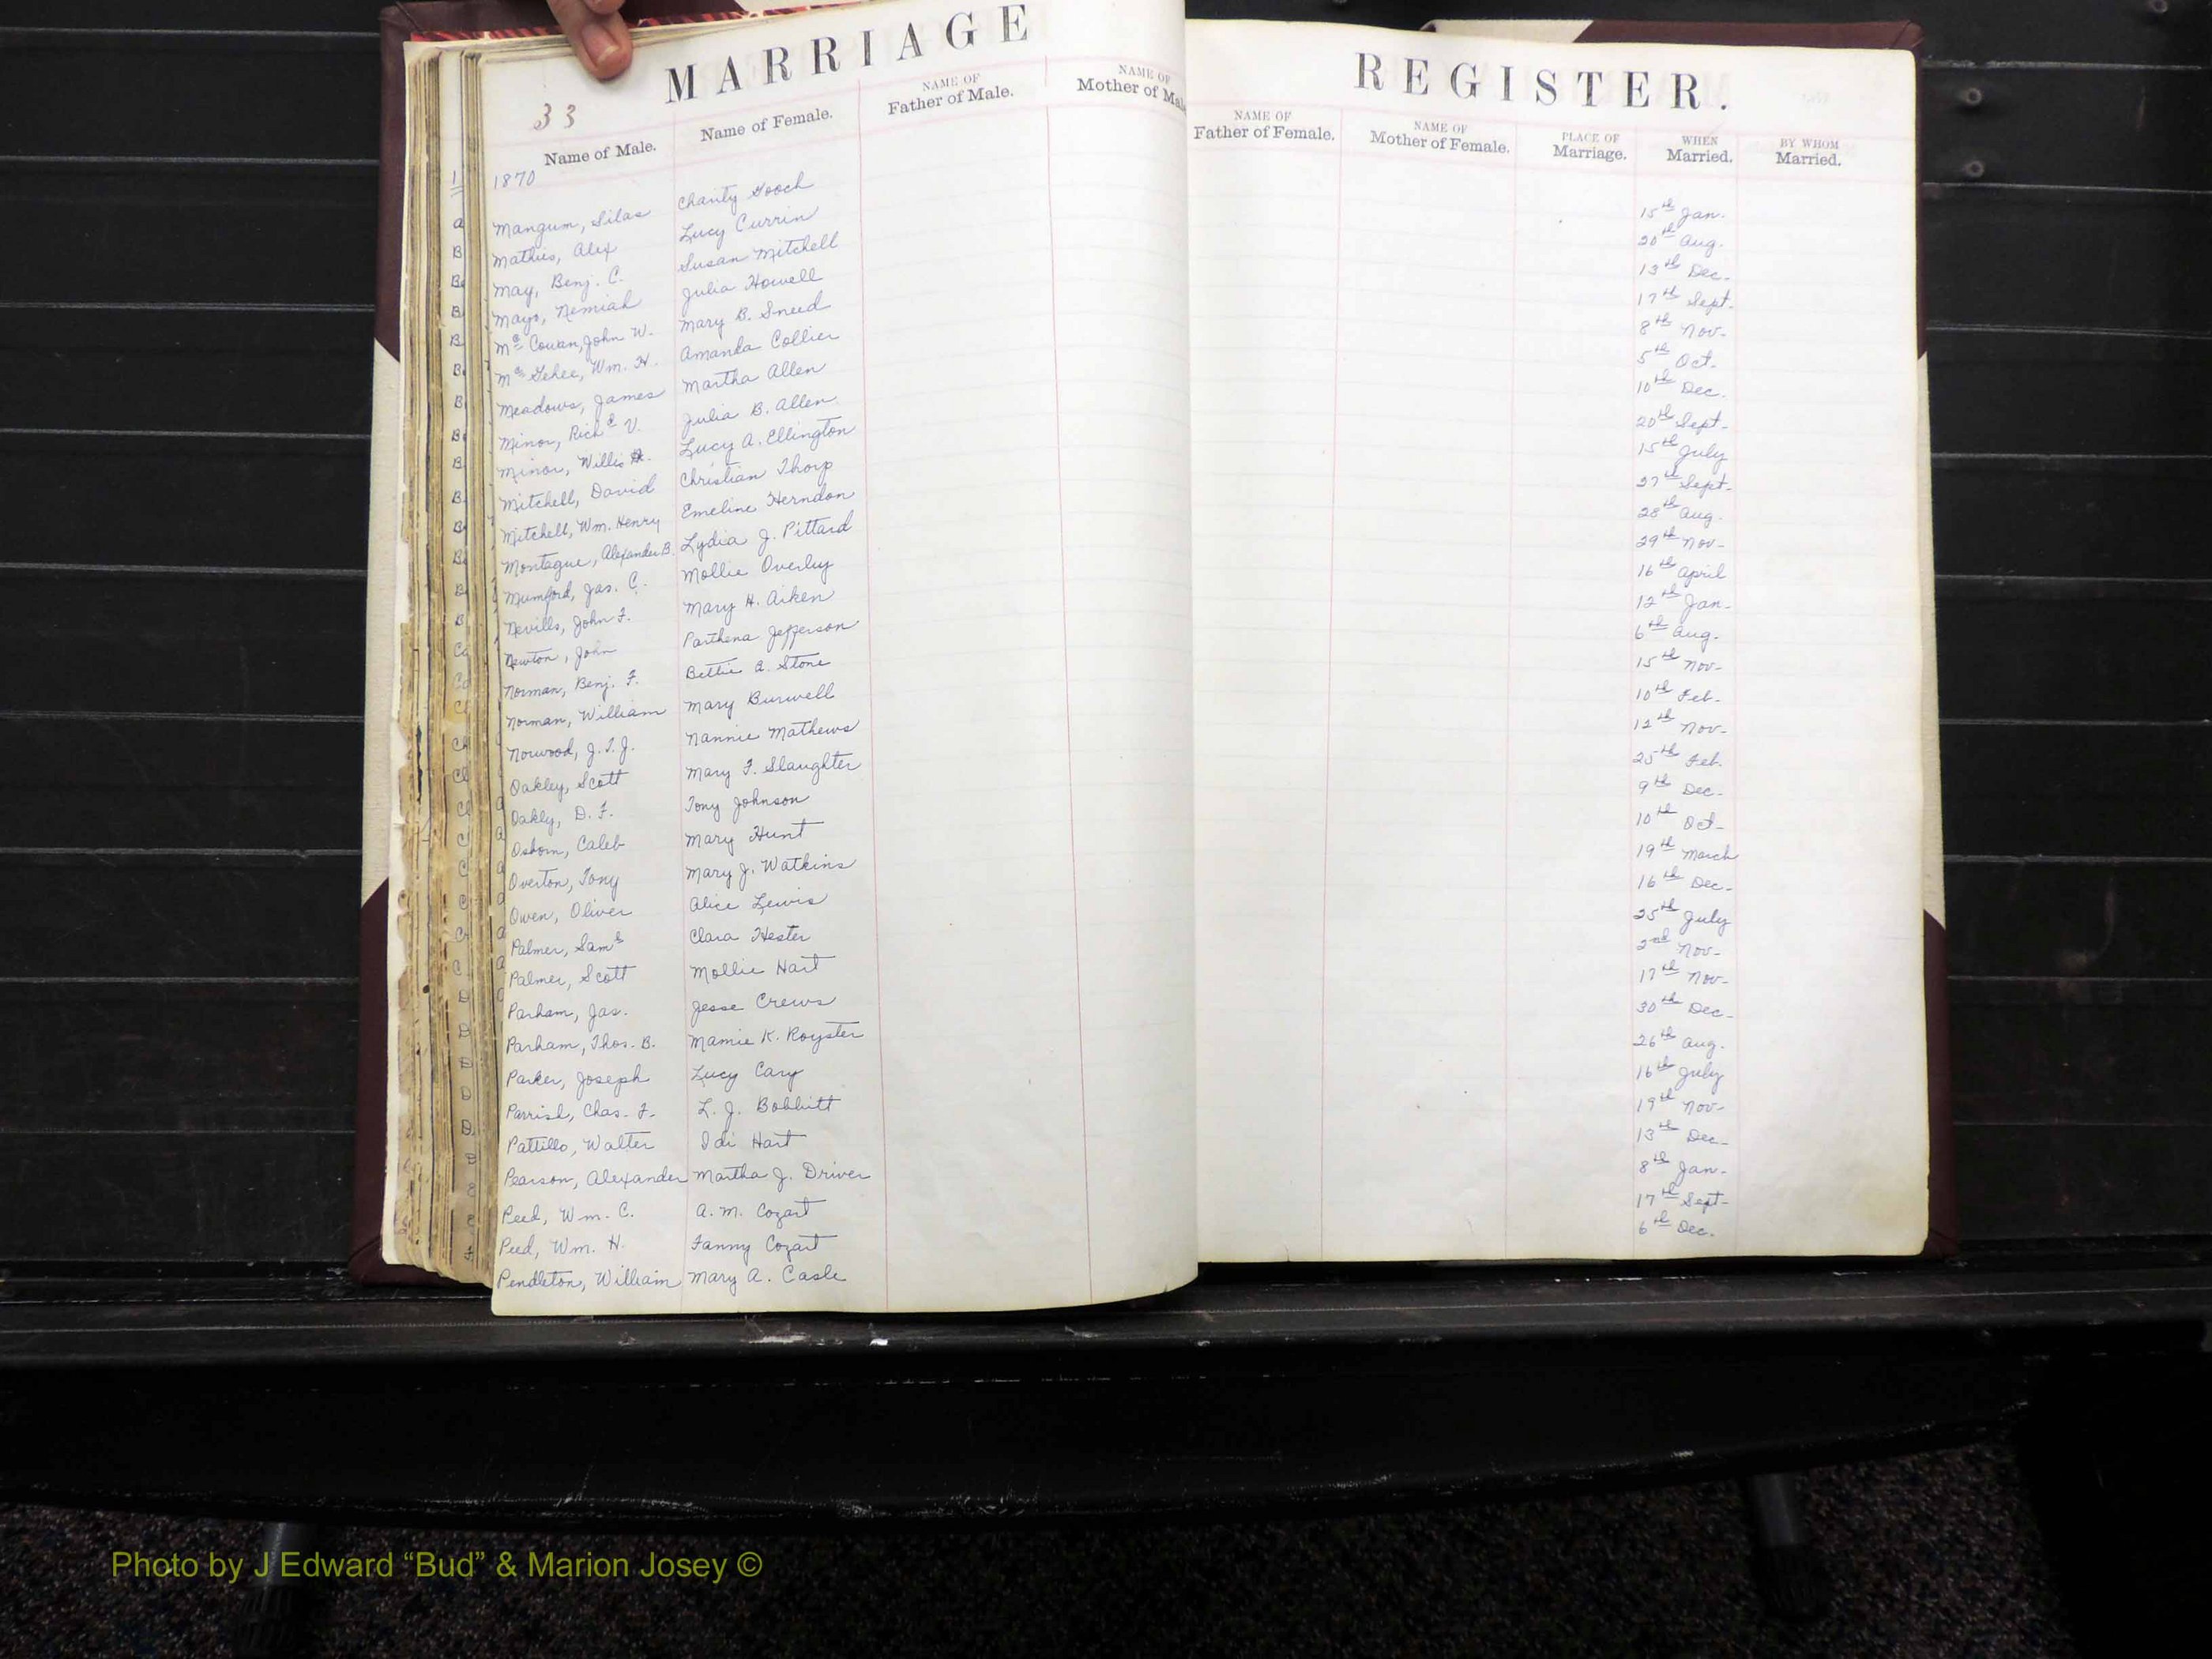 MARRIAGE REGISTER.
33
Name of Male. Name of Female. NAME OF Father of Male. NAME OF Mother of Mal NAME OF Father of Female. NAME OF Mother of Female. PLACE OF Marriage. WHEN Married. BY WHOM Married.
1870
Mangum, Silas Charity Gooch 15th Jan.
Mathis, Alex Lucy Currin 20th Aug.
May, Benj. C. Susan Mitchell 13th Dec.
Mayo, Nemiah Julia Howell 17th Sept.
Mc Cowan, John W. Mary B. Sneed 8th Nov.
Mc Gehee, Wm. H. Amanda Collier 5th Oct.
Meadows, James Martha Allen 10th Dec.
Minor, Richd V. Julia B. Allen 20th Sept.
Minor, Willis H. Lucy A. Ellington 15th July
Mitchell, David Christian Thorp 27th Sept.
Mitchell, Wm. Henry Emeline Herndon 28th Aug.
Montague, Alexander B. Lydia J. Pittard 29th Nov.
Mumford, Jas. C. Mollie Overby 16th April
Nevills, John F. Mary H. Aiken 12th Jan.
Newton, John Parthena Jefferson 6th Aug.
Norman, Benj. F. Bettie A. Stone 15th Nov.
Norman, William Mary Burwell 10th Feb.
Norwood, J. T. J. Nannie Mathews 12th Nov.
Oakley, Scott Mary F. Slaughter 25th Feb.
Oakly, D. F. Tony Johnson 9th Dec.
Osborn, Caleb Mary Hunt 10th Oct.
Overton, Tony Mary J. Watkins 19th March
Owen, Oliver Alice Lewis 16th Dec.
Palmer, Saml Clara Hester 25th July
Palmer, Scott Mollie Hart 2nd Nov.
Parham, Jas. Jesse Crews 17th Nov.
Parham, Thos. B. Mamie K. Royster 30th Dec.
Parker, Joseph Lucy Cary 26th Aug.
Parrish, Chas. F. L. J. Bobbitt 16th July
Pattillo, Walter Idi Hart 19th Nov.
Pearson, Alexander Martha J. Driver 13th Dec.
Peed, Wm. C. A. M. Cozart 8th Jan.
Peed, Wm. H. Fanny Cozart 17th Sept.
Pendleton, William Mary A. Casle 6th Dec.
Photo by J Edward “Bud” & Marion Josey ©